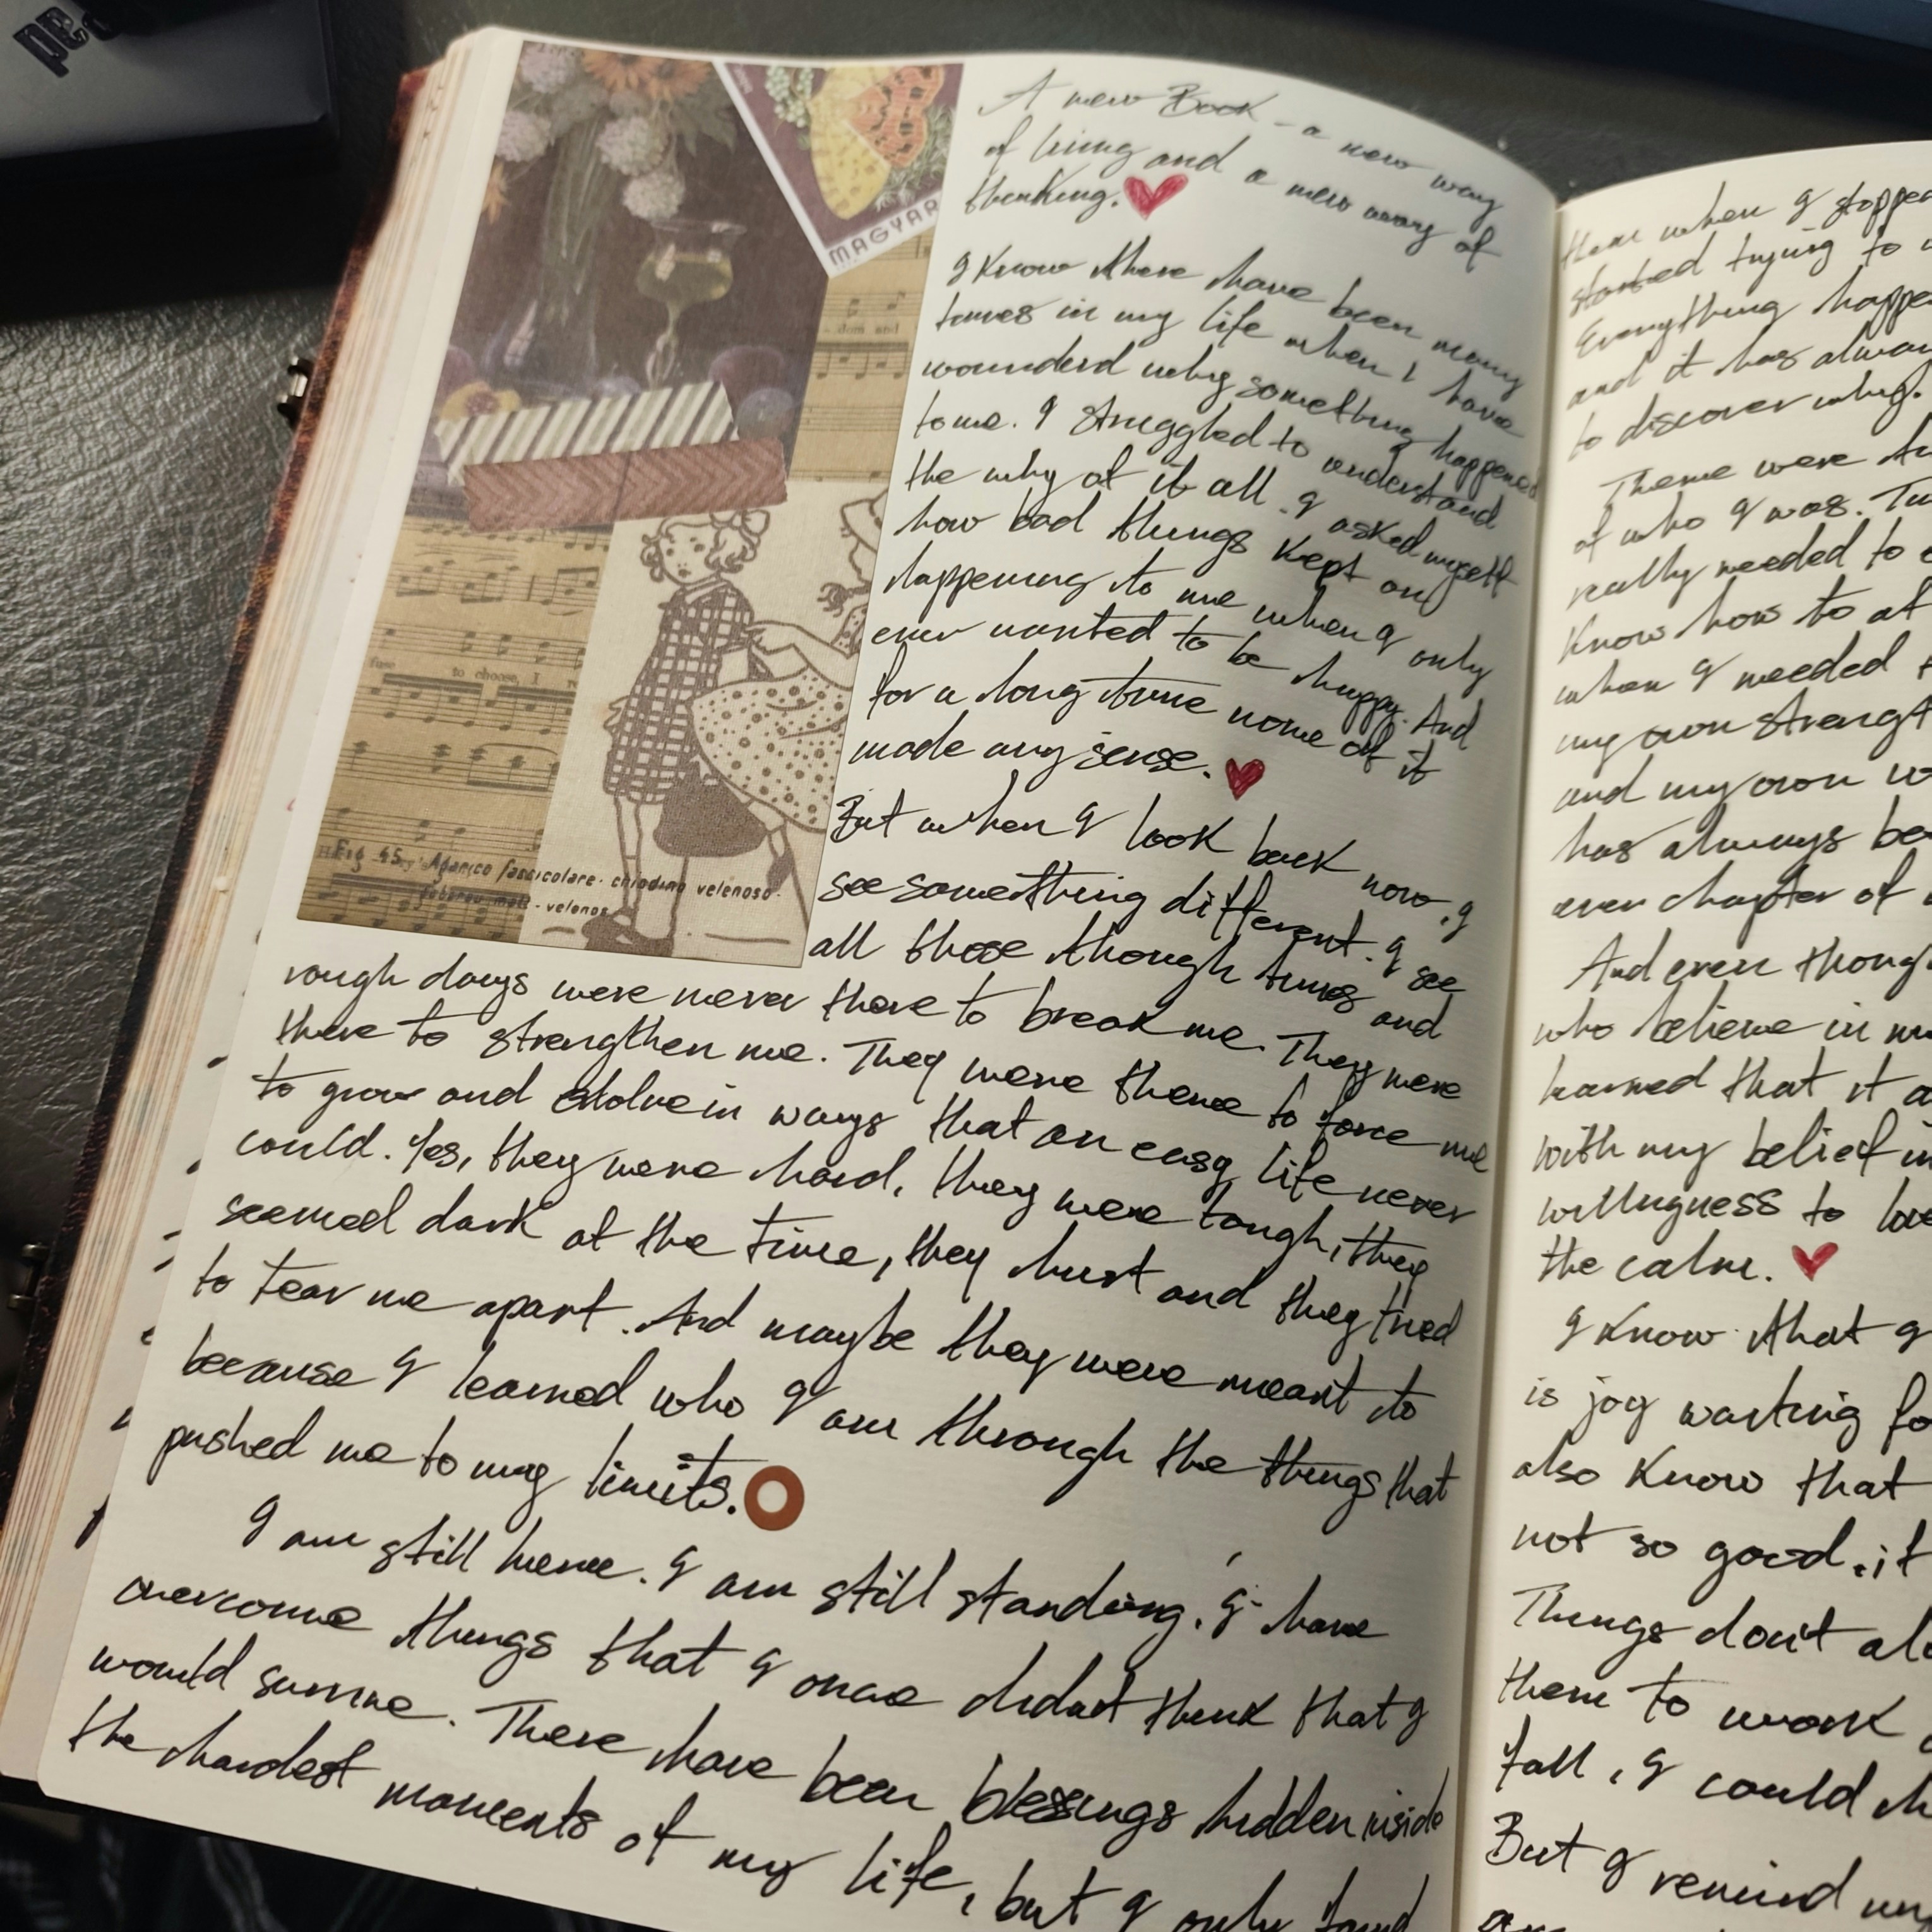 A new Book - a new way
of living and a new way of
thinking.
I know there have been many
times in my life when I have
wounderd why something happened
to me. I struggled to understand
the why of it all. I asked myself
how bad things kept on
happening to me when I only
ever wanted to be happy. And
for a long time none of it
made any sense.
But when I look back now, I
see something different. I see
all those though times and
rough days were never there to break me. They were
there to strengthen me. They were there to force me
to grow and evolve in ways that an easy life never
could. Yes, they were hard, they were tough, they
seemed dark at the time, they hurt and they tried
to tear me apart. And maybe they were meant to
because I learned who I am through the things that
pushed me to my limits.
I am still here. I am still standing. I have
overcome things that I once didnt think that I
would survive. There have been blessings hidden inside
the hardest moments of my life, but I only found
MAGYAR
dom and
fuse to choose, I
Fig 45. Agarico fascicolare. chiodino velenoso.
- velenos
them when I stopped
started trying to
Everything happe
and it has alway
to discover why.
There were
of who I was.
really needed to
know how to
when I needed
my own strengt
and my own
has always be
ever chapter of
And even thoug
who believe in
learned that it
with my belief
willingness to love
the calm.
I know that I
is joy waiting fo
also know that
not so good, it
Things don't al
them to work
fall, I could
But I remind